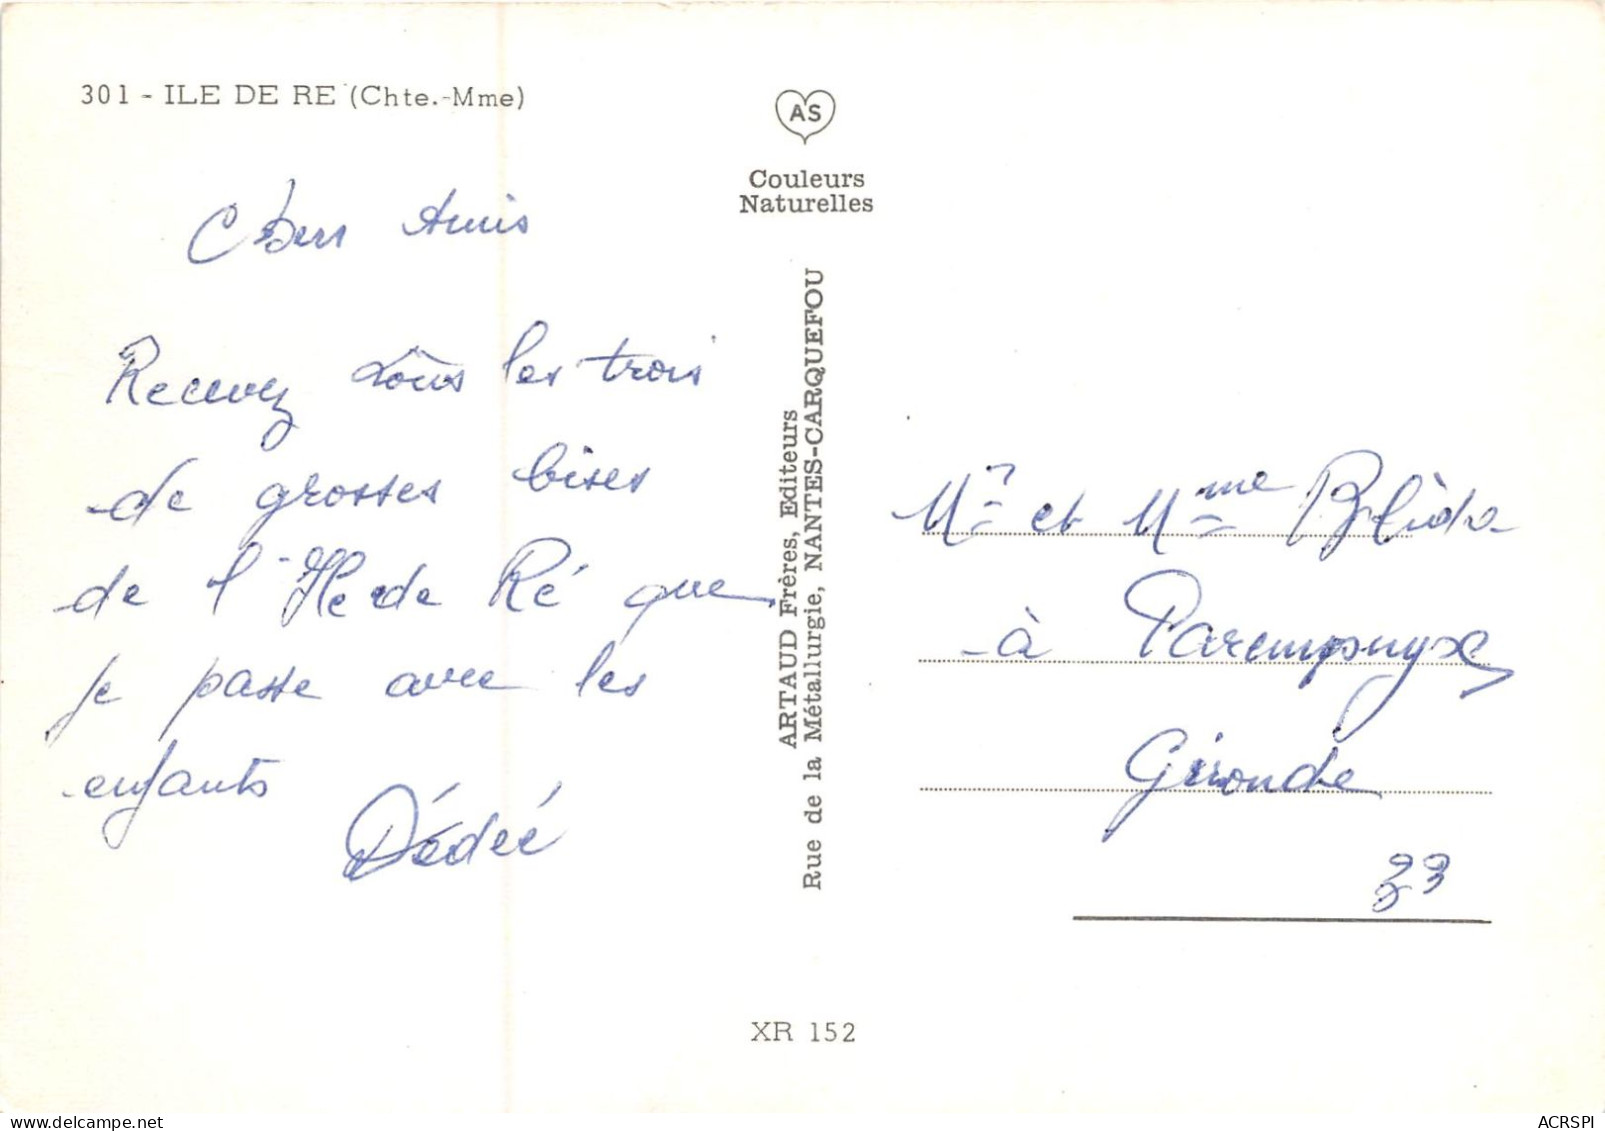 301 - ILE DE RE (Chte.-Mme)
Chers Amis
Recevez tous les trois
de grosses bises
de l'Ile de Ré que
je passe avec les
enfants
Dédée
AS
Couleurs
Naturelles
ARTAUD Frères, Editeurs
Rue de la Métallurgie, NANTES-CARQUEFOU
Mr et Mme
à Parempuyre
Gironde
33
XR 152
ACRSPI